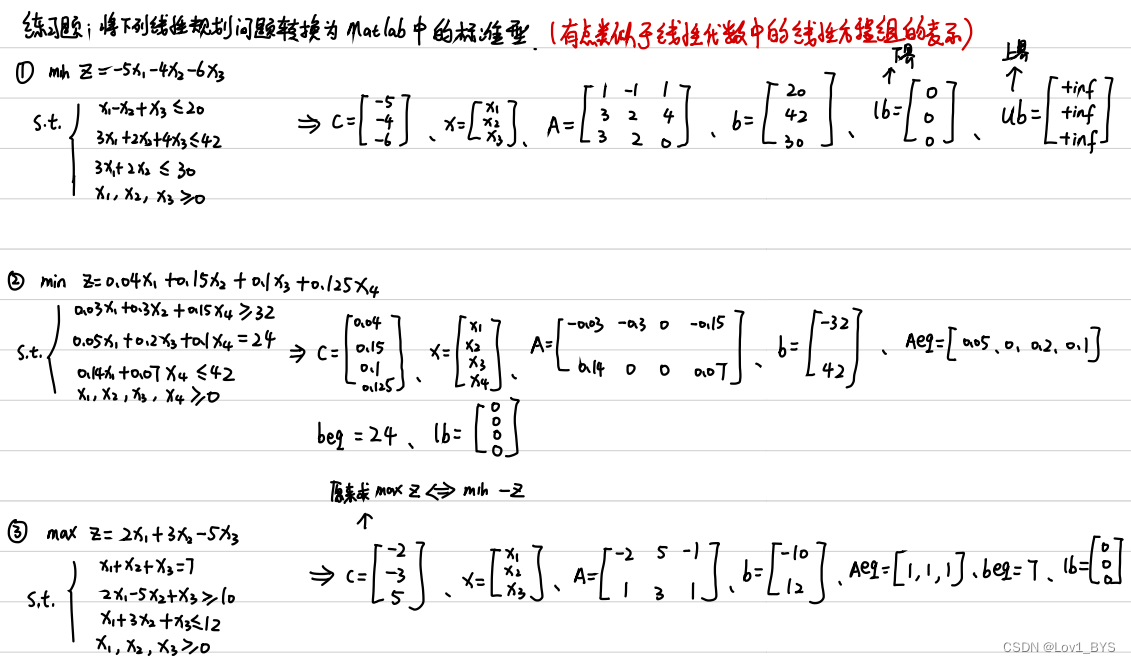 练习题:将下列线性规划问题转换为Matlab中的标准型.(有点类似于线性代数中的线性方程组的表示)
① min Z=-5x₁-4x₂-6x₃
s.t. { x₁-x₂+x₃≤20
3x₁+2x₂+4x₃≤42
3x₁+2x₂≤30
x₁, x₂, x₃≥0
⇒ C=[-5; -4; -6]、x=[x₁; x₂; x₃]、A=[1 -1 1; 3 2 4; 3 2 0]、b=[20; 42; 30]、lb=[0; 0; 0]、ub=[+inf; +inf; +inf]
下界 上界
② min Z=0.04x₁+0.15x₂+0.1x₃+0.125x₄
s.t. { 0.03x₁+0.3x₂+0.15x₄≥32
0.05x₁+0.2x₃+0.1x₄=24
0.14x₁+0.07x₄≤42
x₁, x₂, x₃, x₄≥0
⇒ C=[0.04; 0.15; 0.1; 0.125]、x=[x₁; x₂; x₃; x₄]、A=[-0.03 -0.3 0 -0.15; 0.14 0 0 0.07]、b=[-32; 42]、Aeq=[0.05、0、0.2、0.1]
beq=24、lb=[0; 0; 0; 0]
原来求max Z⇔min -Z
③ max Z=2x₁+3x₂-5x₃
s.t. { x₁+x₂+x₃=7
2x₁-5x₂+x₃≥10
x₁+3x₂+x₃≤12
x₁, x₂, x₃≥0
⇒ C=[-2; -3; 5]、x=[x₁; x₂; x₃]、A=[-2 5 -1; 1 3 1]、b=[-10; 12]、Aeq=[1,1,1]、beq=7、lb=[0; 0; 0]
CSDN @Lov1_BYS